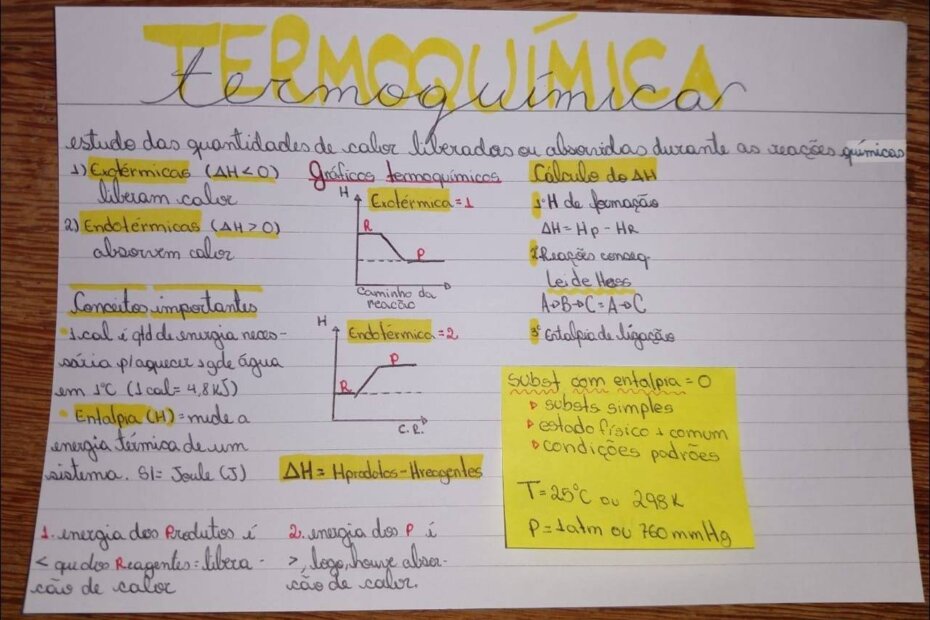 TERMOQUÍMICA
termoquímica
estudo das quantidades de calor liberadas ou absorvidas durante as reações químicas
1) Exotérmicas (ΔH < 0)
liberam calor
2) Endotérmicas (ΔH > 0)
absorvem calor
Conceitos importantes
• 1 cal é qtd de energia neces-
sária p/ aquecer 1g de água
em 1°C (1 cal = 4,8 KJ)
• Entalpia (H) = mede a
energia térmica de um
sistema. SI = Joule (J)
Gráficos termoquímicos
H
Exotérmica = 1
R
P
Caminho da
reação
H
Endotérmica = 2
P
R
C.R.
ΔH = Hprodutos - Hreagentes
Cálculo do ΔH
1° H de formação
ΔH = Hp - HR
2° Reações conseq
Lei de Hess
A→B→C = A→C
3° Entalpia de ligação
Subst com entalpia = 0
substs simples
estado físico + comum
condições padrões
T = 25°C ou 298K
P = 1atm ou 760 mmHg
1. energia dos Produtos é
< que dos Reagentes = libera-
ção de calor
2. energia dos P é
>, logo, houve absor-
ção de calor.